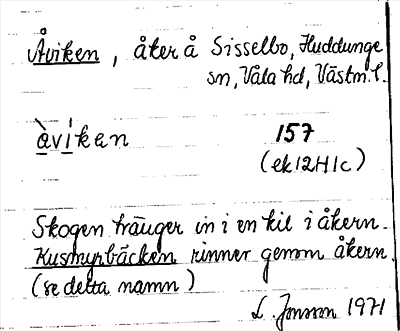 Åviken, åker å Sisselbo, Huddunge
sn, Våla hd, Västm. l.
àviken 157
(ek 12H1c)
Skogen tränger in i en kil i åkern.
Kusmyrbäcken rinner genom åkern.
(se detta namn)
L. Jonson 1971